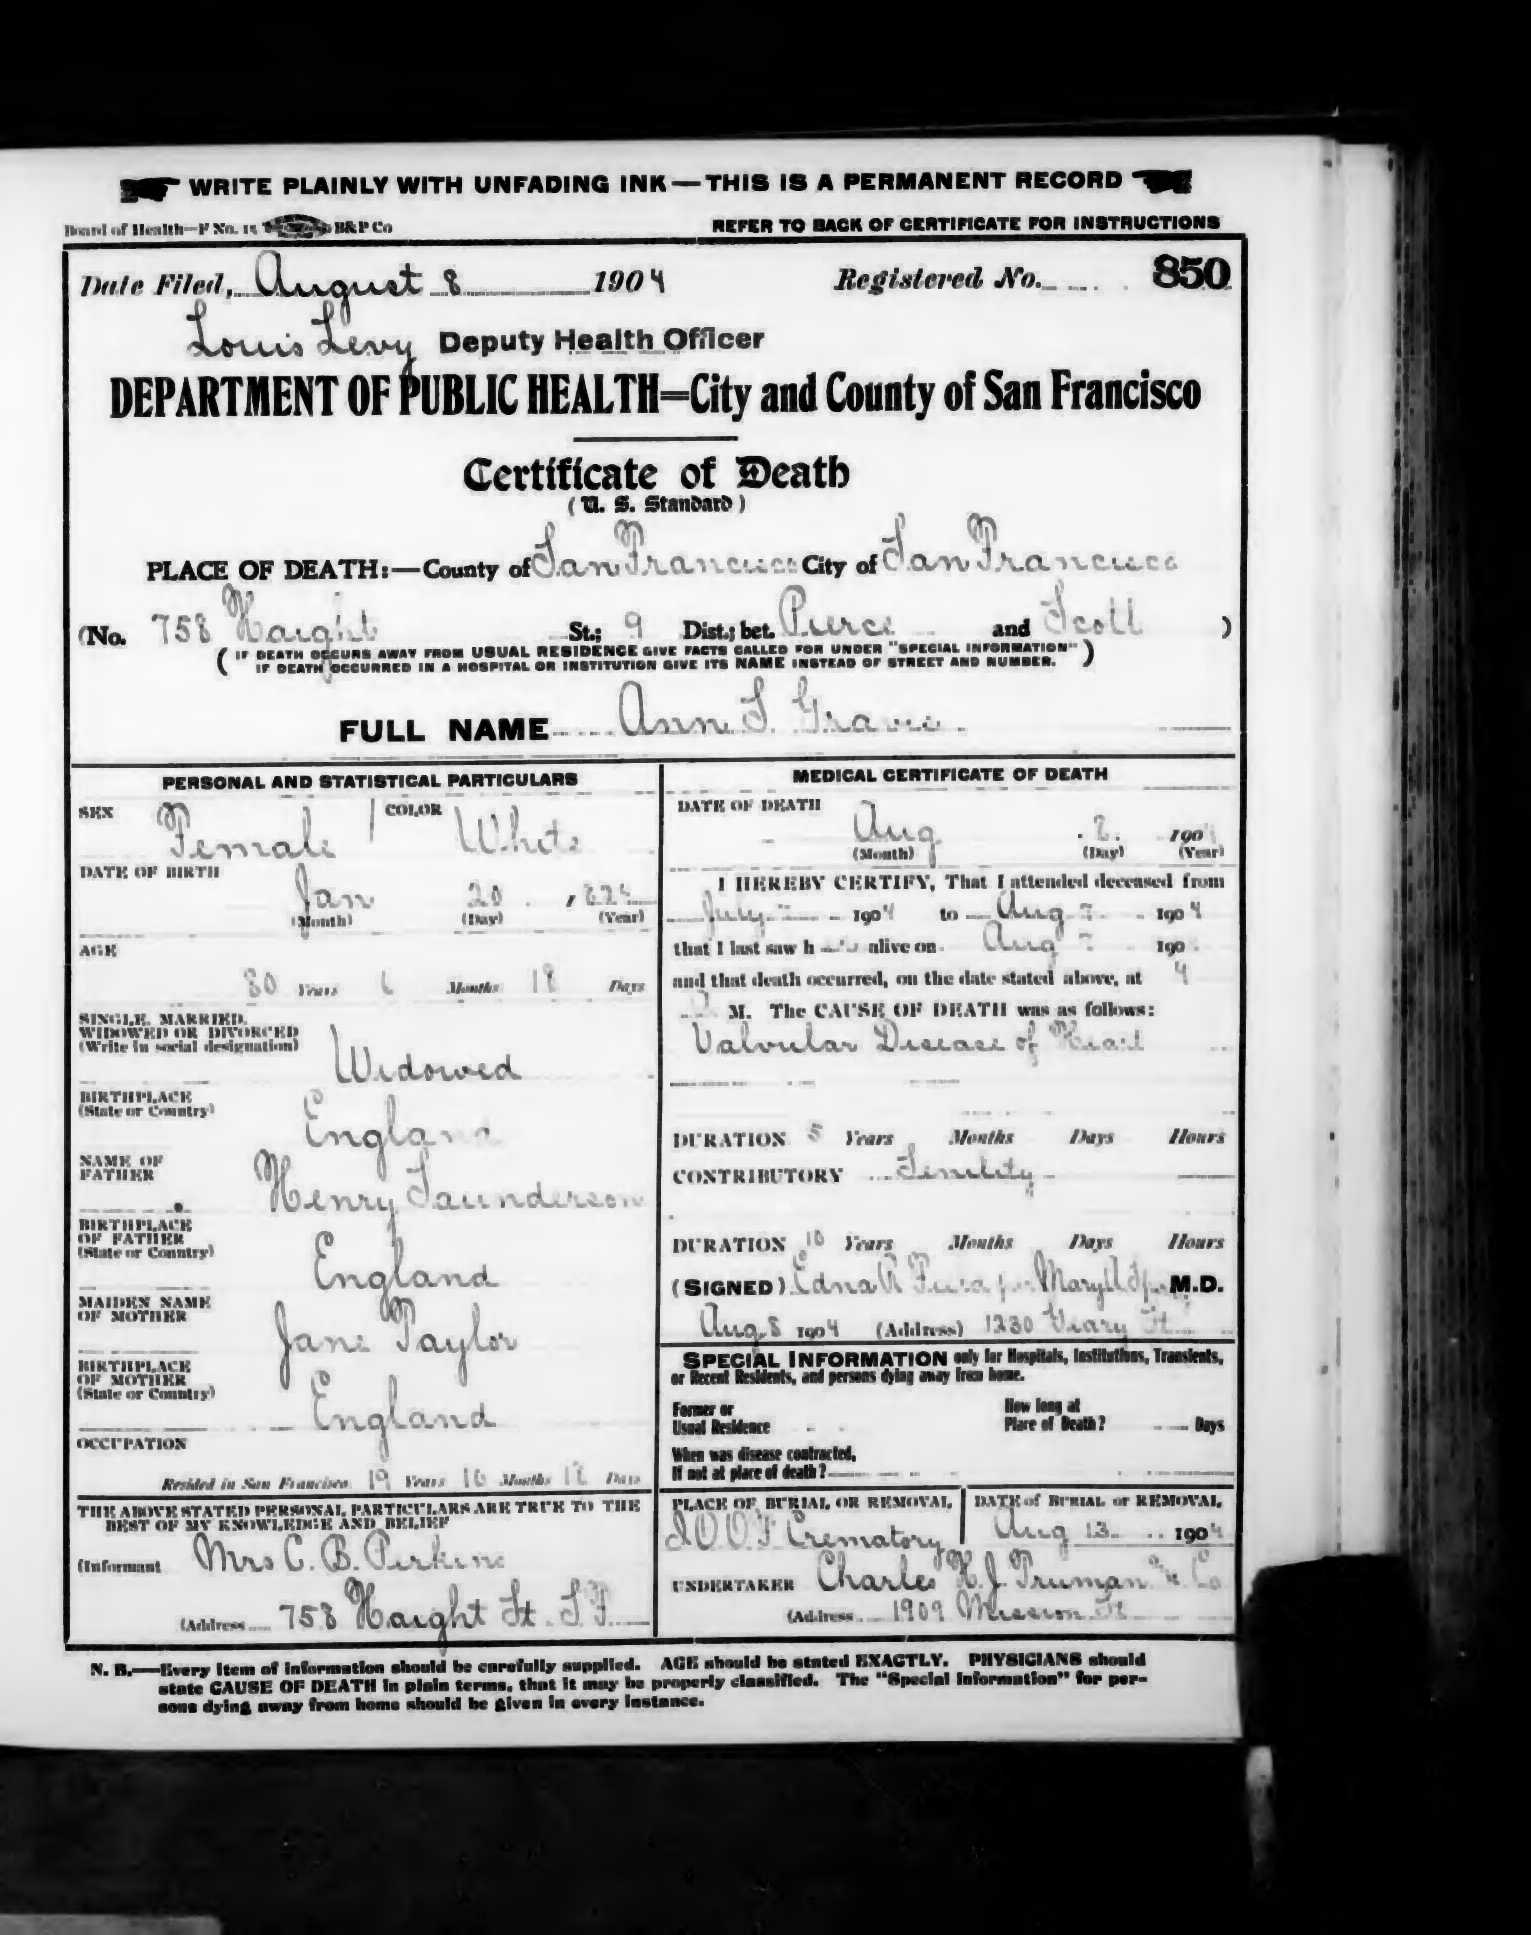 WRITE PLAINLY WITH UNFADING INK—THIS IS A PERMANENT RECORD
Board of Health—F No. 15 B&P Co REFER TO BACK OF CERTIFICATE FOR INSTRUCTIONS
Date Filed, August 8 1904 Registered No. 850
Louis Levy Deputy Health Officer
DEPARTMENT OF PUBLIC HEALTH=City and County of San Francisco
Certificate of Death
(U. S. Standard)
PLACE OF DEATH:—County of San Francisco City of San Francisco
(No. 758 Haight St.; 9 Dist.; bet. Pierce and Scott )
( IF DEATH OCCURS AWAY FROM USUAL RESIDENCE GIVE FACTS CALLED FOR UNDER "SPECIAL INFORMATION" )
IF DEATH OCCURRED IN A HOSPITAL OR INSTITUTION GIVE ITS NAME INSTEAD OF STREET AND NUMBER.
FULL NAME Ann S.
PERSONAL AND STATISTICAL PARTICULARS
SEX Female COLOR White
DATE OF BIRTH
Jan 20
(Month) (Day) (Year)
AGE
80 Years 6 Months 18 Days
SINGLE, MARRIED,
WIDOWED OR DIVORCED
(Write in social designation)
Widowed
BIRTHPLACE
(State or Country)
England
NAME OF
FATHER
Henry Saunderson
BIRTHPLACE
OF FATHER
(State or Country)
England
MAIDEN NAME
OF MOTHER
Jane Taylor
BIRTHPLACE
OF MOTHER
(State or Country)
England
OCCUPATION
Resided in San Francisco 19 Years 10 Months Days
THE ABOVE STATED PERSONAL PARTICULARS ARE TRUE TO THE
BEST OF MY KNOWLEDGE AND BELIEF
(Informant Mrs C. B. Perkins
(Address 758 Haight St. S F
MEDICAL CERTIFICATE OF DEATH
DATE OF DEATH
Aug 8 190
(Month) (Day) (Year)
I HEREBY CERTIFY, That I attended deceased from
July 1904 to Aug 7 1904
that I last saw h alive on Aug 7 190
and that death occurred, on the date stated above, at 4
M. The CAUSE OF DEATH was as follows:
Valvular Disease of Heart
DURATION 5 Years Months Days Hours
CONTRIBUTORY Senility
DURATION 10 Years Months Days Hours
(SIGNED) Edna R per Mary M.D.
Aug 8 1904 (Address) 1230 Geary St
SPECIAL INFORMATION only for Hospitals, Institutions, Transients,
or Recent Residents, and persons dying away from home.
Former or
Usual Residence
How long at
Place of Death? Days
When was disease contracted,
If not at place of death?
PLACE OF BURIAL OR REMOVAL DATE of BURIAL or REMOVAL
I O O F Crematory Aug 13 1904
UNDERTAKER Charles H. J. Truman & Co
(Address 1909 Mission St
N. B.—Every item of information should be carefully supplied. AGE should be stated EXACTLY. PHYSICIANS should
state CAUSE OF DEATH in plain terms, that it may be properly classified. The "Special Information" for per-
sons dying away from home should be given in every instance.